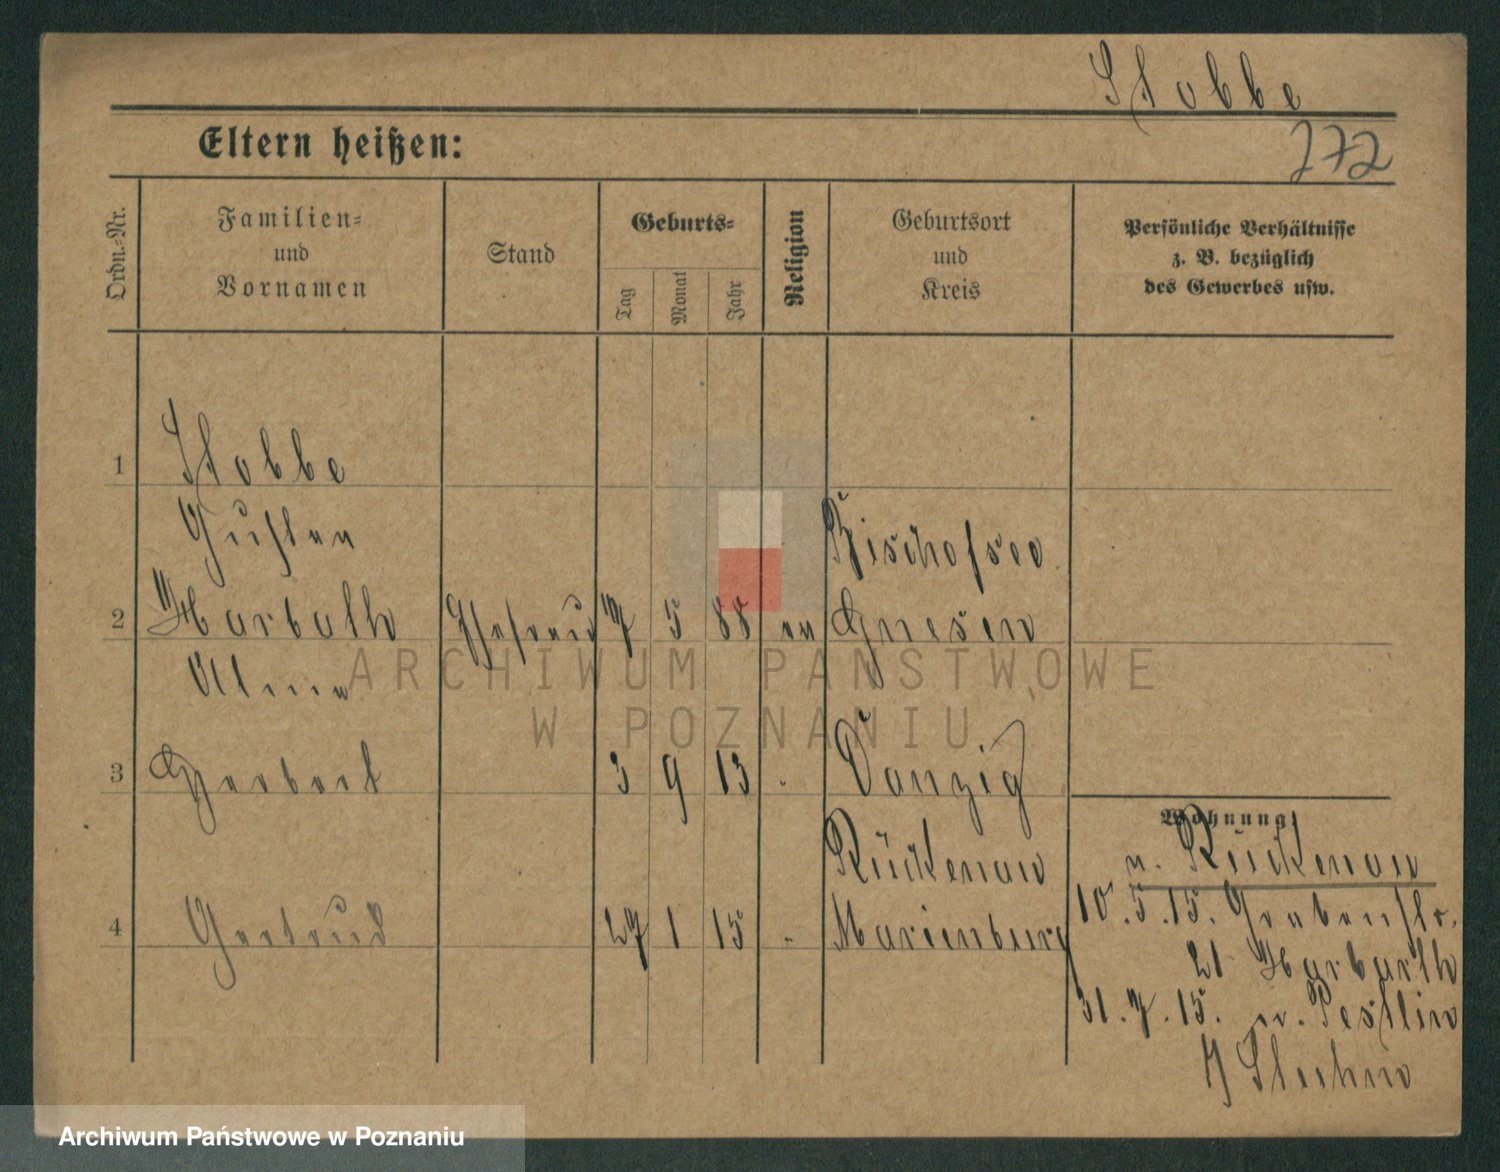 Stobbe
272
Eltern heißen:
Ordn.-Nr.
Familien-
und
Vornamen
Stand
Geburts-
Tag
Monat
Jahr
Religion
Geburtsort
und
Kreis
Persönliche Verhältnisse
z. B. bezüglich
des Gewerbes usw.
1
Stobbe
Gustav
Bischofsee
2
Harbath
Ehefrau
7
5
88
ev
Gnesen
Alma
ARCHIWUM PAŃSTWOWE
W POZNANIU
3
Herbert
3
9
13
Danzig
Wohnung:
Rückenau
n. Rückenau
4
Gertrud
27
1
15
Marienburg
10.5.15. Grabenstr.
21 Harbarth
31.7.15. n. Pestlin
Archiwum Państwowe w Poznaniu